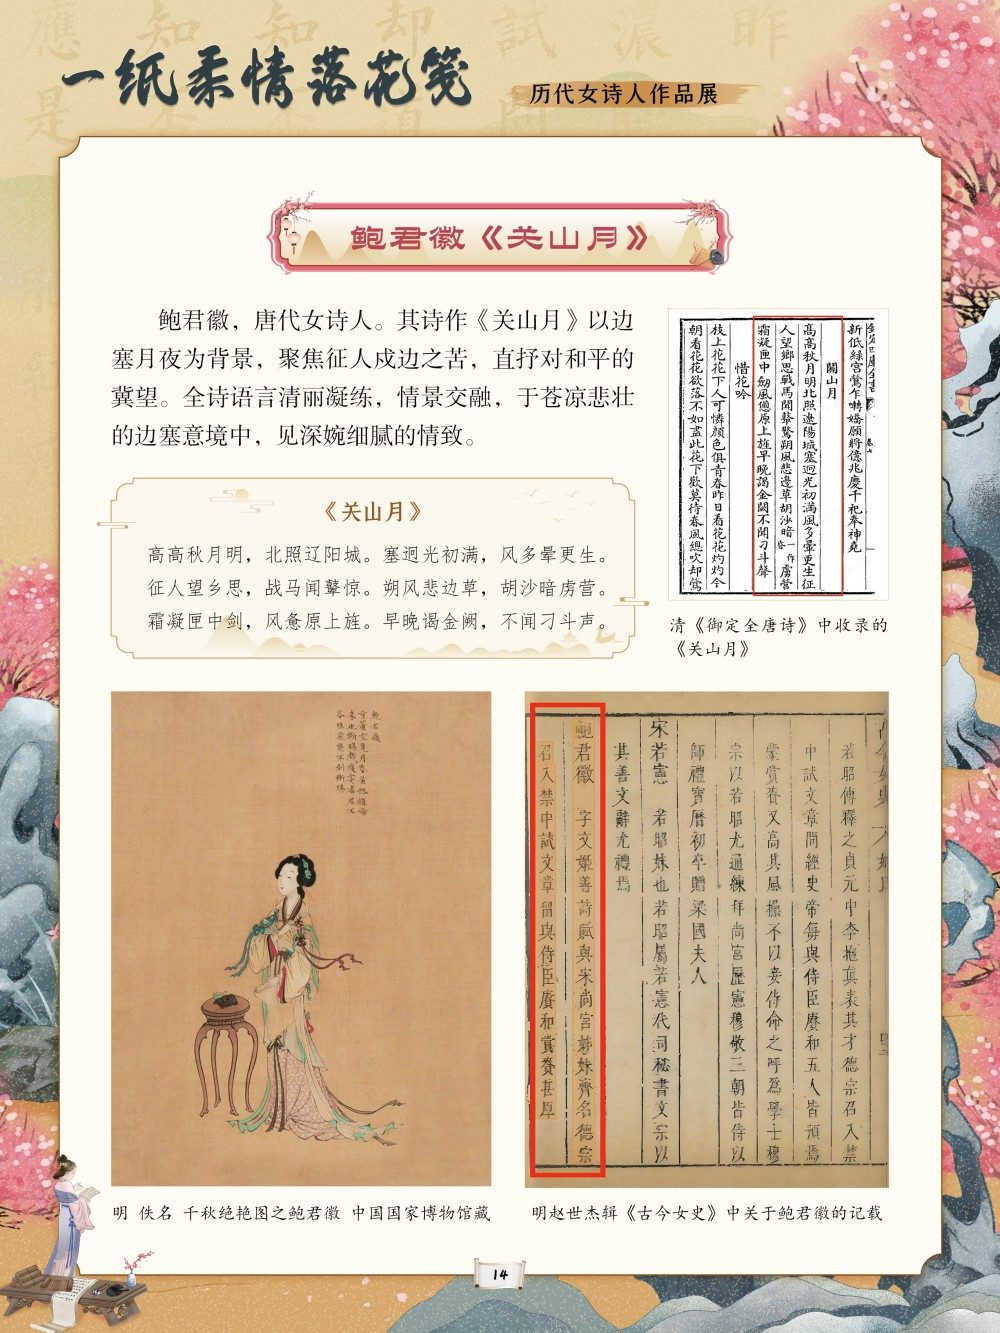 一纸柔情落花笺
历代女诗人作品展
鲍君徽《关山月》
鲍君徽，唐代女诗人。其诗作《关山月》以边
塞月夜为背景，聚焦征人戍边之苦，直抒对和平的
冀望。全诗语言清丽凝练，情景交融，于苍凉悲壮
的边塞意境中，见深婉细腻的情致。
《关山月》
高高秋月明，北照辽阳城。塞迥光初满，风多晕更生。
征人望乡思，战马闻鼙惊。朔风悲边草，胡沙暗虏营。
霜凝匣中剑，风惫原上旌。早晚谒金阙，不闻刁斗声。
新低綠宮鶯乍囀嬌願將億兆慶千祀奉神堯
關山月
高高秋月明北照遼陽城塞迥光初滿風多暈更生征
人望鄉思戰馬聞鼙驚朔風悲邊草胡沙暗一作昏虜營
霜凝匣中劒風憊原上旌早晚謁金闕不聞刁斗聲
惜花吟
枝上花花下人可憐顏色俱青春昨日看花花灼灼今
朝看花花欲落不如盡此花下歡莫待春風總吹却鶯
清《御定全唐诗》中收录的
《关山月》
鮑君徽
若昭傳釋之貞元中李抱真表其才德宗召入禁
中試文章問經史帝每與侍臣賡和五人皆預焉
蒙賞賚又高其風操不以妾侍命之呼爲學士穆
宗以若昭尤通練拜尚宮歷憲穆敬三朝皆侍以
師禮寶曆初卒贈梁國夫人
宋若憲 若昭妹也若昭屬若憲代司秘書文宗以
其善文辭尤禮焉
鮑君徽 字文姬善詩賦與宋尚宮姊妹齊名德宗
召入禁中試文章留與侍臣賡和賞賚甚厚
明 佚名 千秋绝艳图之鲍君徽 中国国家博物馆藏
明赵世杰辑《古今女史》中关于鲍君徽的记载
14